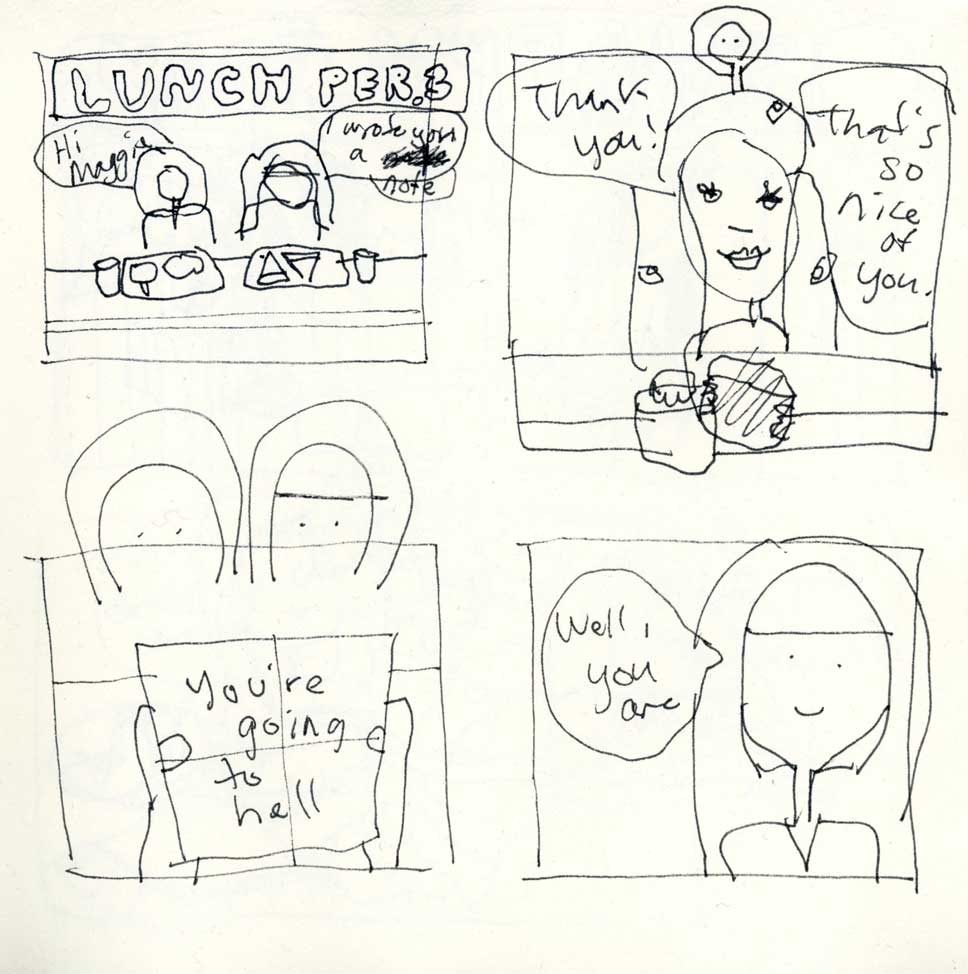 LUNCH PER.3
Hi
Maggie
I wrote you
a
note
Thank
you!
That's
so
nice
of
you.
you're
going
to
hell
Well,
you
are